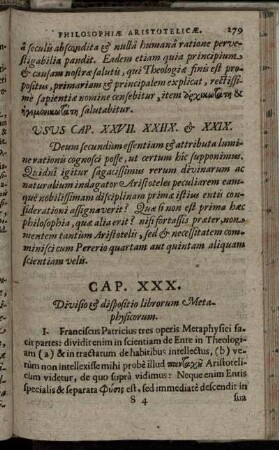 PHILOSOPHIÆ ARISTOTELICÆ. 279
à seculis abscondita & nullâ humanâ ratione perve-
stigabilia pandit. Eadem etiam quia principium
& causam nostræ salutis, qui Theologiæ finis est pro-
positus, primariam & principalem explicat, rectissi-
mè sapientiæ nomine censebitur, item ἀρχικωτάτη &
ἡγεμονικωτάτη salutabitur.
USUS CAP. XXVII. XXIIX. & XXIX.
Deum secundum essentiam & attributa lumi-
ne rationis cognosci posse, ut certum hic supponimus.
Quidni igitur sagacissimus rerum divinarum ac
naturalium indagator Aristoteles peculiarem eam-
que nobilissimam disciplinam prima istius entis con-
siderationi assignaverit? Quæ si non est prima hæc
philosophia, quæ alia erit? nisi fortassis præter, non
mentem tantum Aristotelis, sed & necessitatem com-
minisci cum Pererio quartam aut quintam aliquam
scientiam velis.
CAP. XXX.
Divisio & dispositio librorum Meta-
physicorum.
I. Franciscus Patricius tres operis Metaphysici fa-
cit partes: dividit enim in scientiam de Ente in Theologi-
am (a) & in tractatum de habitibus intellectus, (b) ve-
rùm non intellexisse mihi probè illud Aristoteli-
cum videtur, de quo suprà vidimus: Neque enim Entis
specialis & separata φύσις est, sed immediatè descendit in
S 4 sua